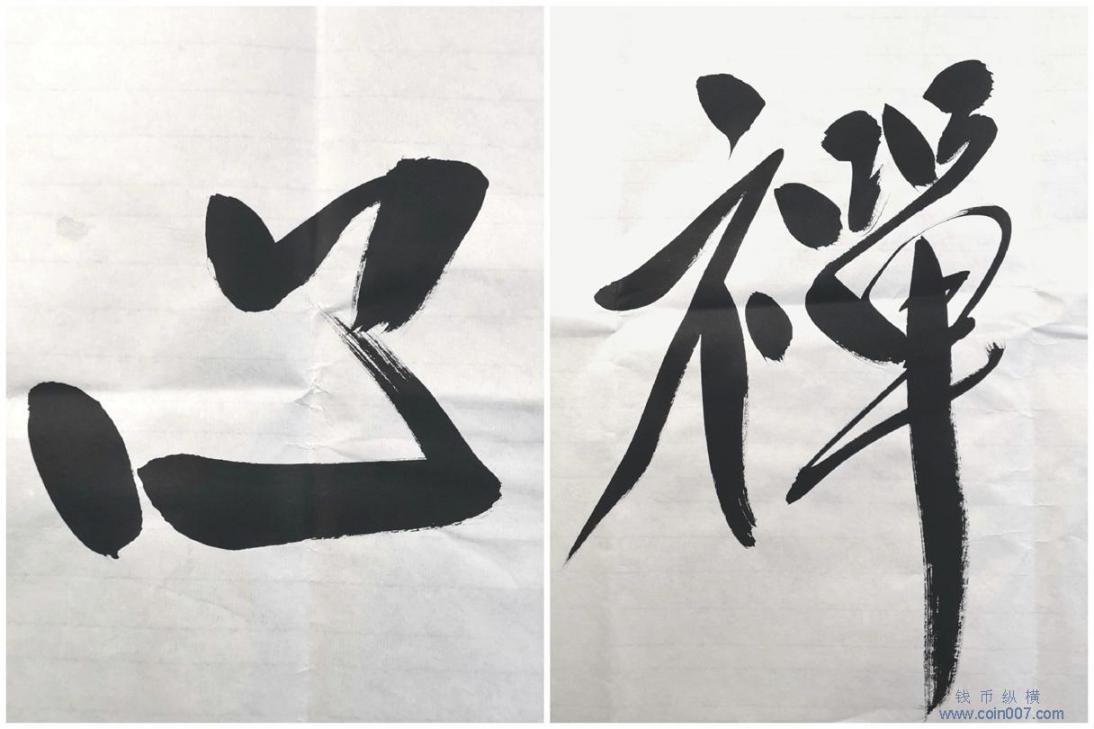 心
禪
钱币纵横
www.coin007.com